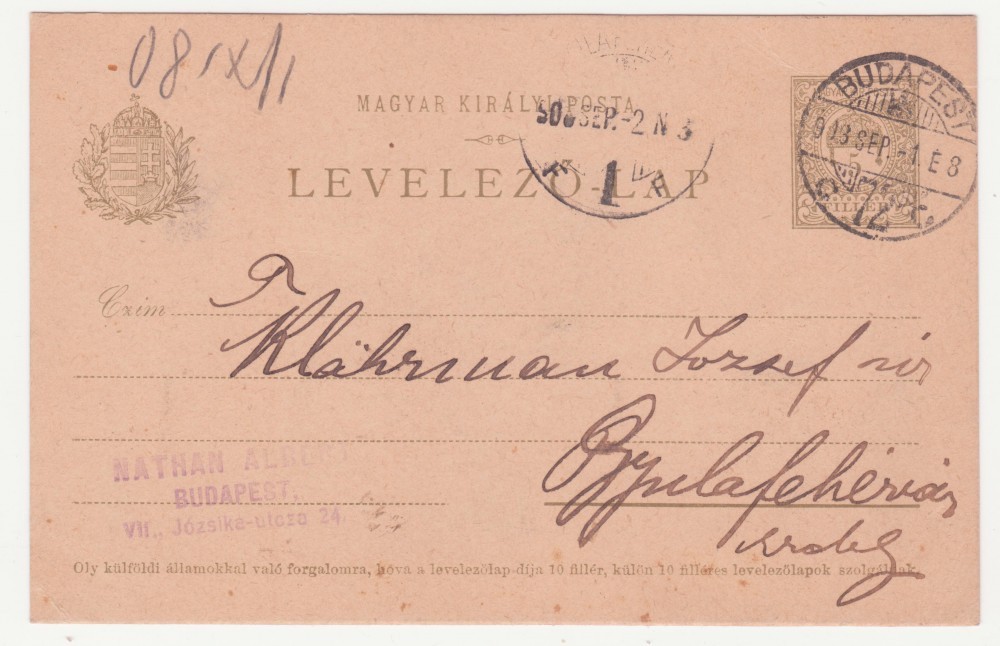 08 IX/1
MAGYAR KIRÁLYI POSTA
LEVELEZŐ-LAP
SEP.-2 N 3
1
BUDAPEST
903 SEP.-1 E 8
5
FILLÉR
Czim
T.
Klährman Jozsef úr
Gyulafehérvár
Erdély
NATHAN
BUDAPEST,
VII., Józsika-utcza 24.
Oly külföldi államokkal való forgalomra, hova a levelezőlap-díja 10 fillér, külön 10 filléres levelezőlapok szolgálnak.